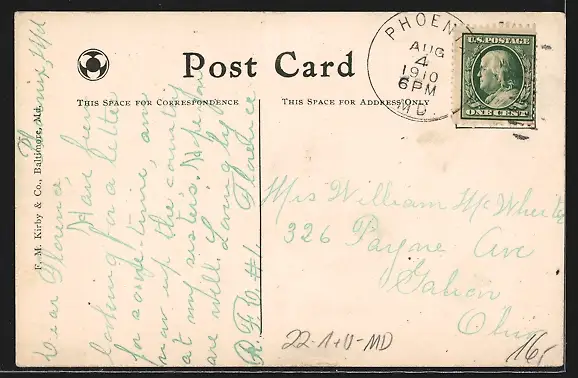 Post Card
THIS SPACE FOR CORRESPONDENCE
THIS SPACE FOR ADDRESS ONLY
F. M. Kirby & Co., Baltimore, Md.
PHOENIX
AUG
4
1910
6 PM
MD.
U.S. POSTAGE
ONE CENT
Phoenix, Md
Dear Florence,
Have been
looking for a letter
for some time, am
now up the country
at my sisters. Hope you
are well. Lovingly
Florence
R.F.D. #1.
Mrs William McWherter
326 Payne Ave
Galion
Ohio
22-1+U-MD
16,-